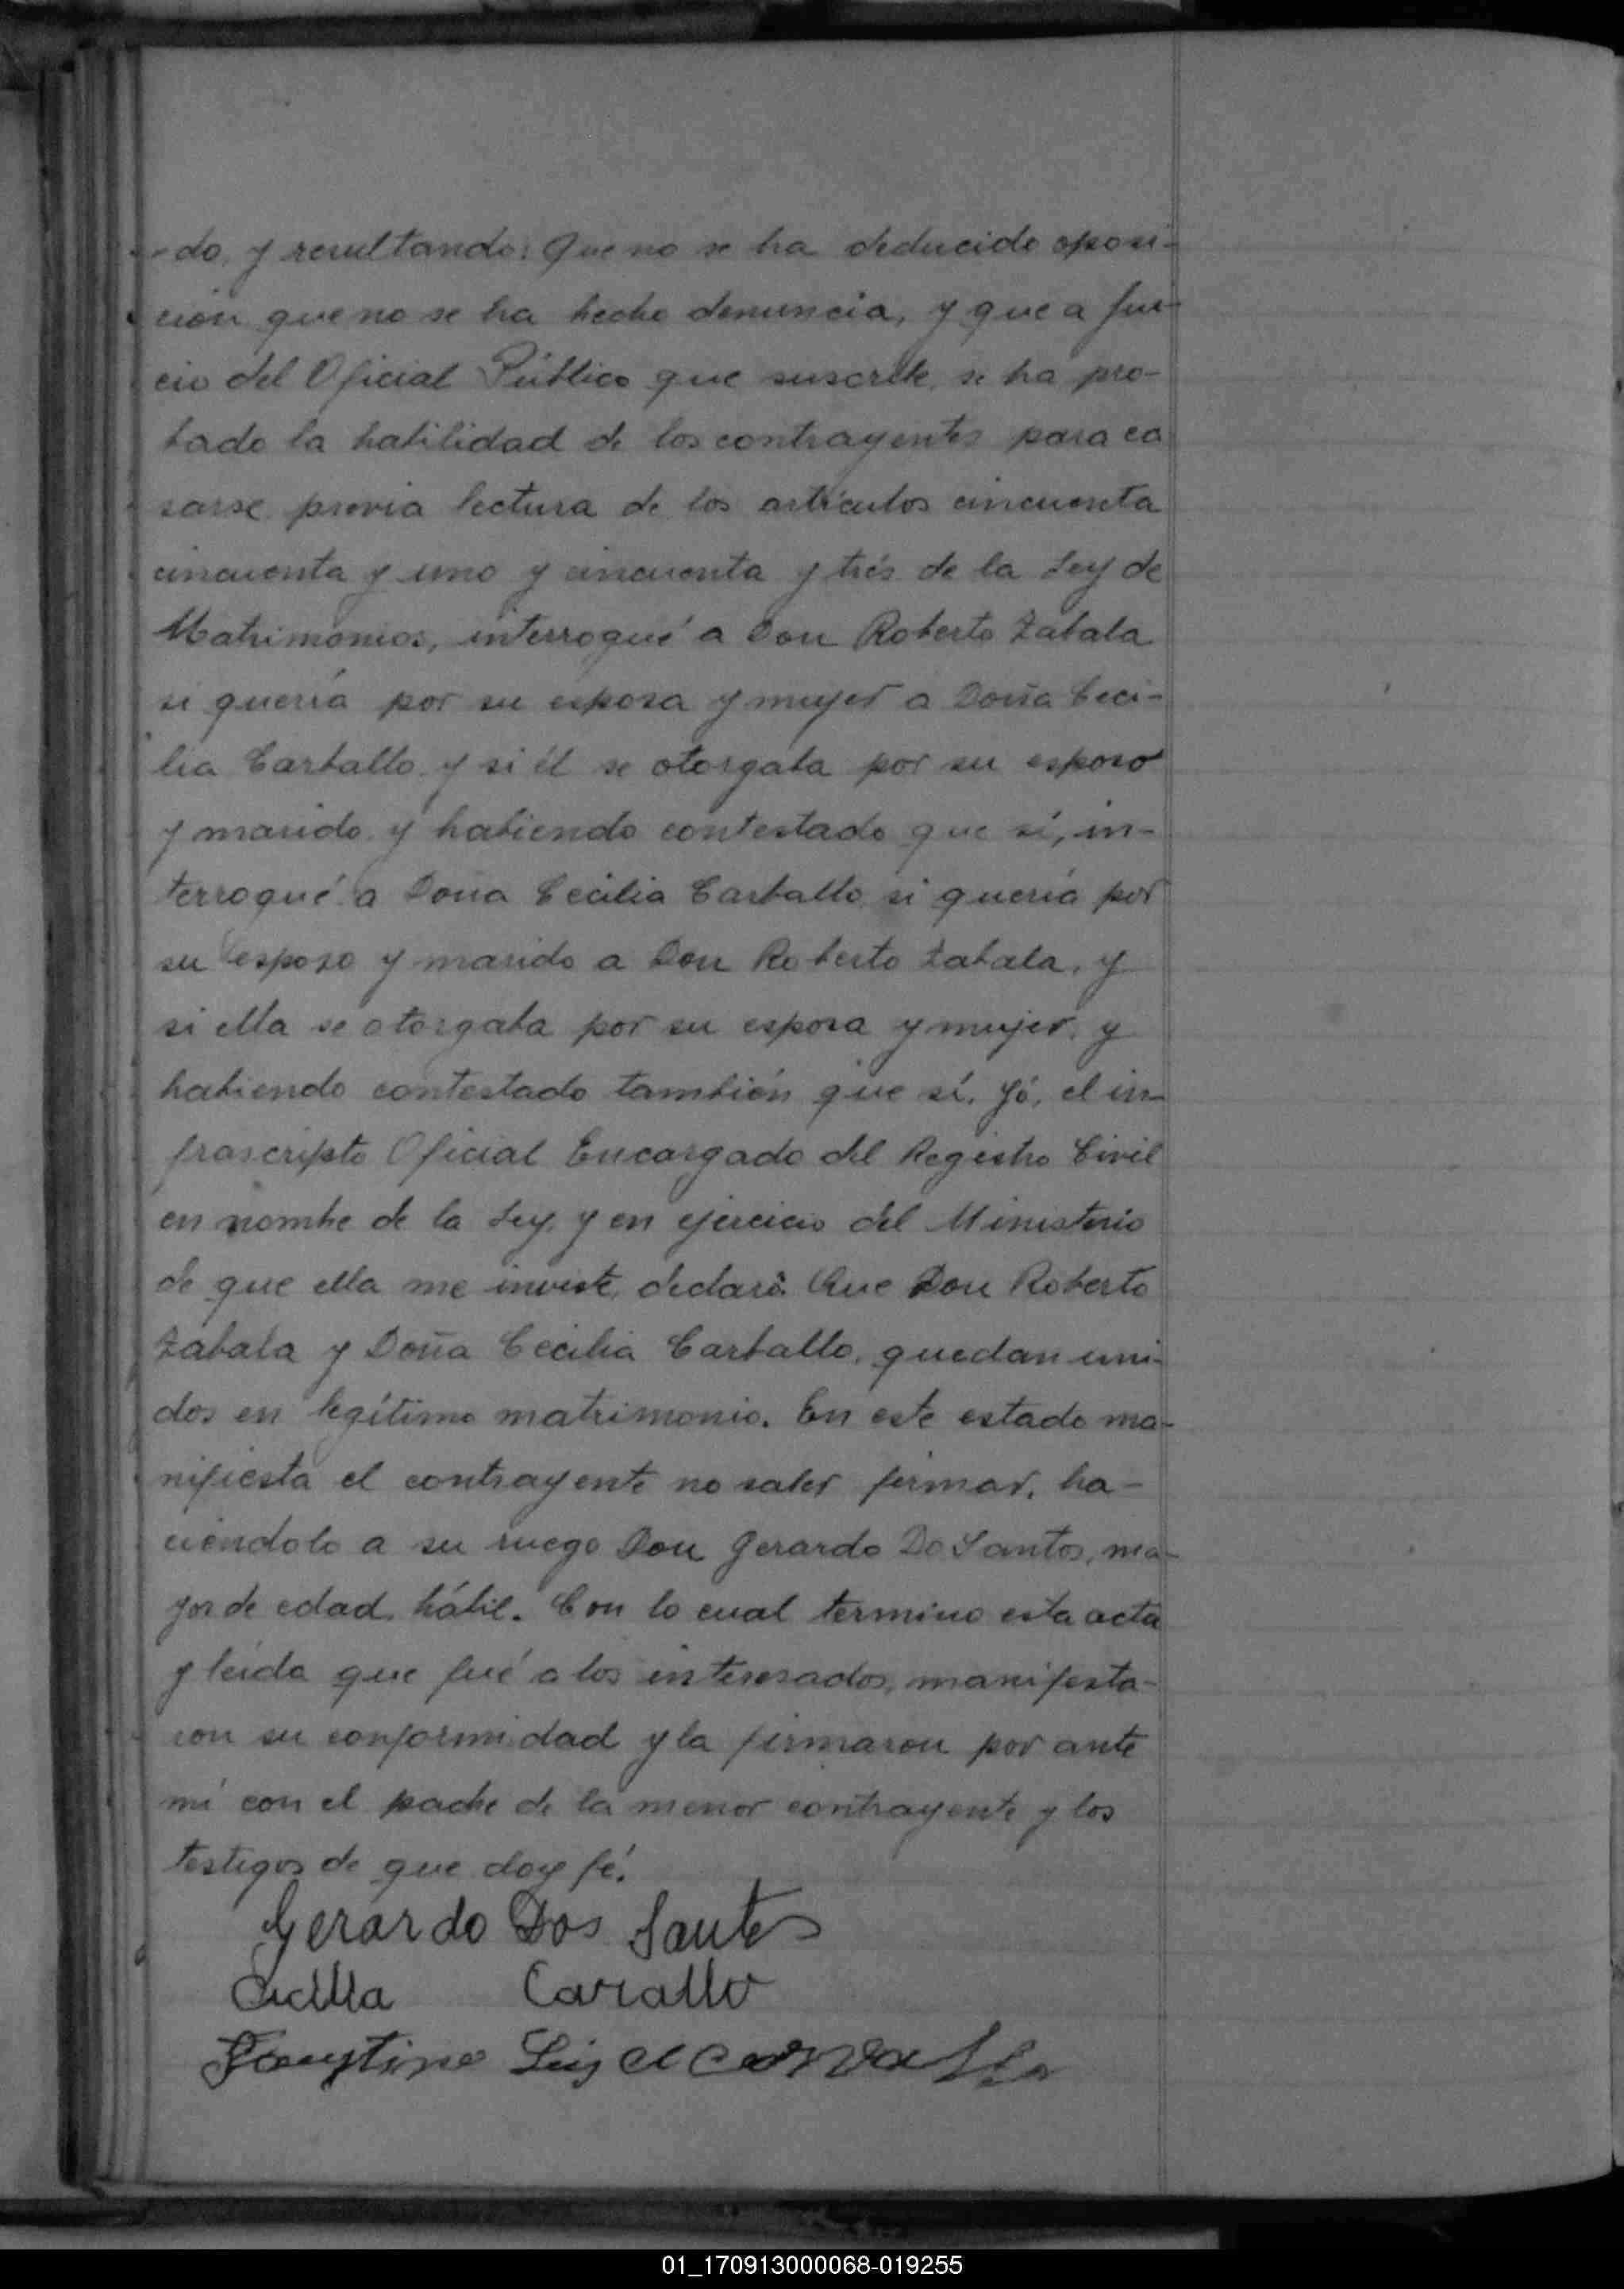 -do, y resultando: Que no se ha deducido oposi-
ción que no se ha hecho denuncia, y que a jui-
cio del Oficial Público que suscribe, se ha pro-
bado la habilidad de los contrayentes para ca
sarse, previa lectura de los artículos cincuenta
cincuenta y uno y cincuenta y trés de la Ley de
Matrimonios, interrogué a Don Roberto Zabala
si quería por su esposa y mujer a Doña Ceci-
lia Carballo, y si él se otorgaba por su esposo
y marido, y habiendo contestado que sí, in-
terrogué a Doña Cecilia Carballo, si quería por
su esposo y marido a Don Roberto Zabala, y
si ella se otorgaba por su esposa y mujer, y
habiendo contestado también que sí. Yó, el in-
frascripto Oficial Encargado del Registro Civil
en nombre de la Ley, y en ejercicio del Ministerio
de que ella me inviste, declaró: Que Don Roberto
Zabala y Doña Cecilia Carballo, quedan uni-
dos en legítimo matrimonio. En este estado ma-
nifiesta el contrayente no saber firmar, ha-
ciéndolo a su ruego Don Gerardo Do Santos, ma-
yor de edad, hábil. Con lo cual termino esta acta
y leída que fué a los interesados, manifesta-
ron su conformidad y la firmaron por ante
mí con el padre de la menor contrayente y los
testigos de que doy fé.
Gerardo Dos Santos
Cicilla Carallo
Faustino
01_170913000068-019255